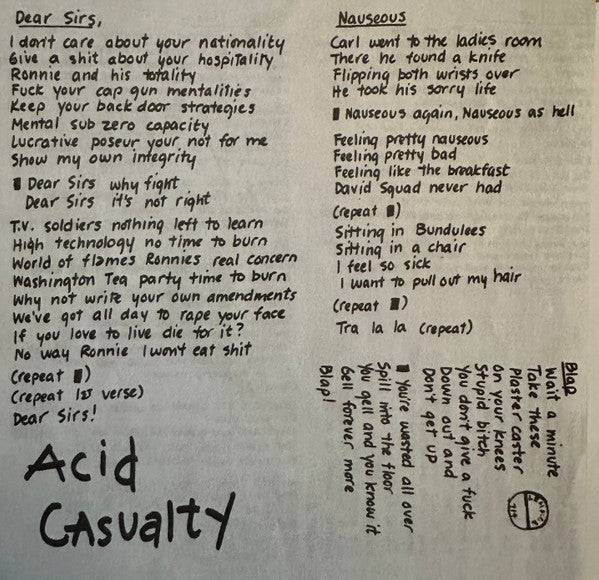 Dear Sirs,
I don't care about your nationality
Give a shit about your hospitality
Ronnie and his totality
Fuck your cap gun mentalities
Keep your back door strategies
Mental sub zero capacity
Lucrative poseur your not for me
Show my own integrity
Dear Sirs why fight
Dear Sirs it's not right
T.V. soldiers nothing left to learn
High technology no time to burn
World of flames Ronnies real concern
Washington Tea party time to burn
Why not write your own amendments
We've got all day to rape your face
If you love to live die for it?
No way Ronnie I won't eat shit
(repeat ▮)
(repeat 1st verse)
Dear Sirs!
Acid
Casualty
Nauseous
Carl went to the ladies room
There he found a knife
Flipping both wrists over
He took his sorry life
▮ Nauseous again, Nauseous as hell
Feeling pretty nauseous
Feeling pretty bad
Feeling like the breakfast
David Squad never had
(repeat ▮)
Sitting in Bundulees
Sitting in a chair
I feel so sick
I want to pull out my hair
(repeat ▮)
Tra la la (repeat)
Blap
Wait a minute
Take these
Plaster caster
On your knees
Stupid bitch
You don't give a fuck
Down out and
Don't get up
▮ You're wasted all over
Spill into the floor
You gell and you know it
Gell forever more
Blap!